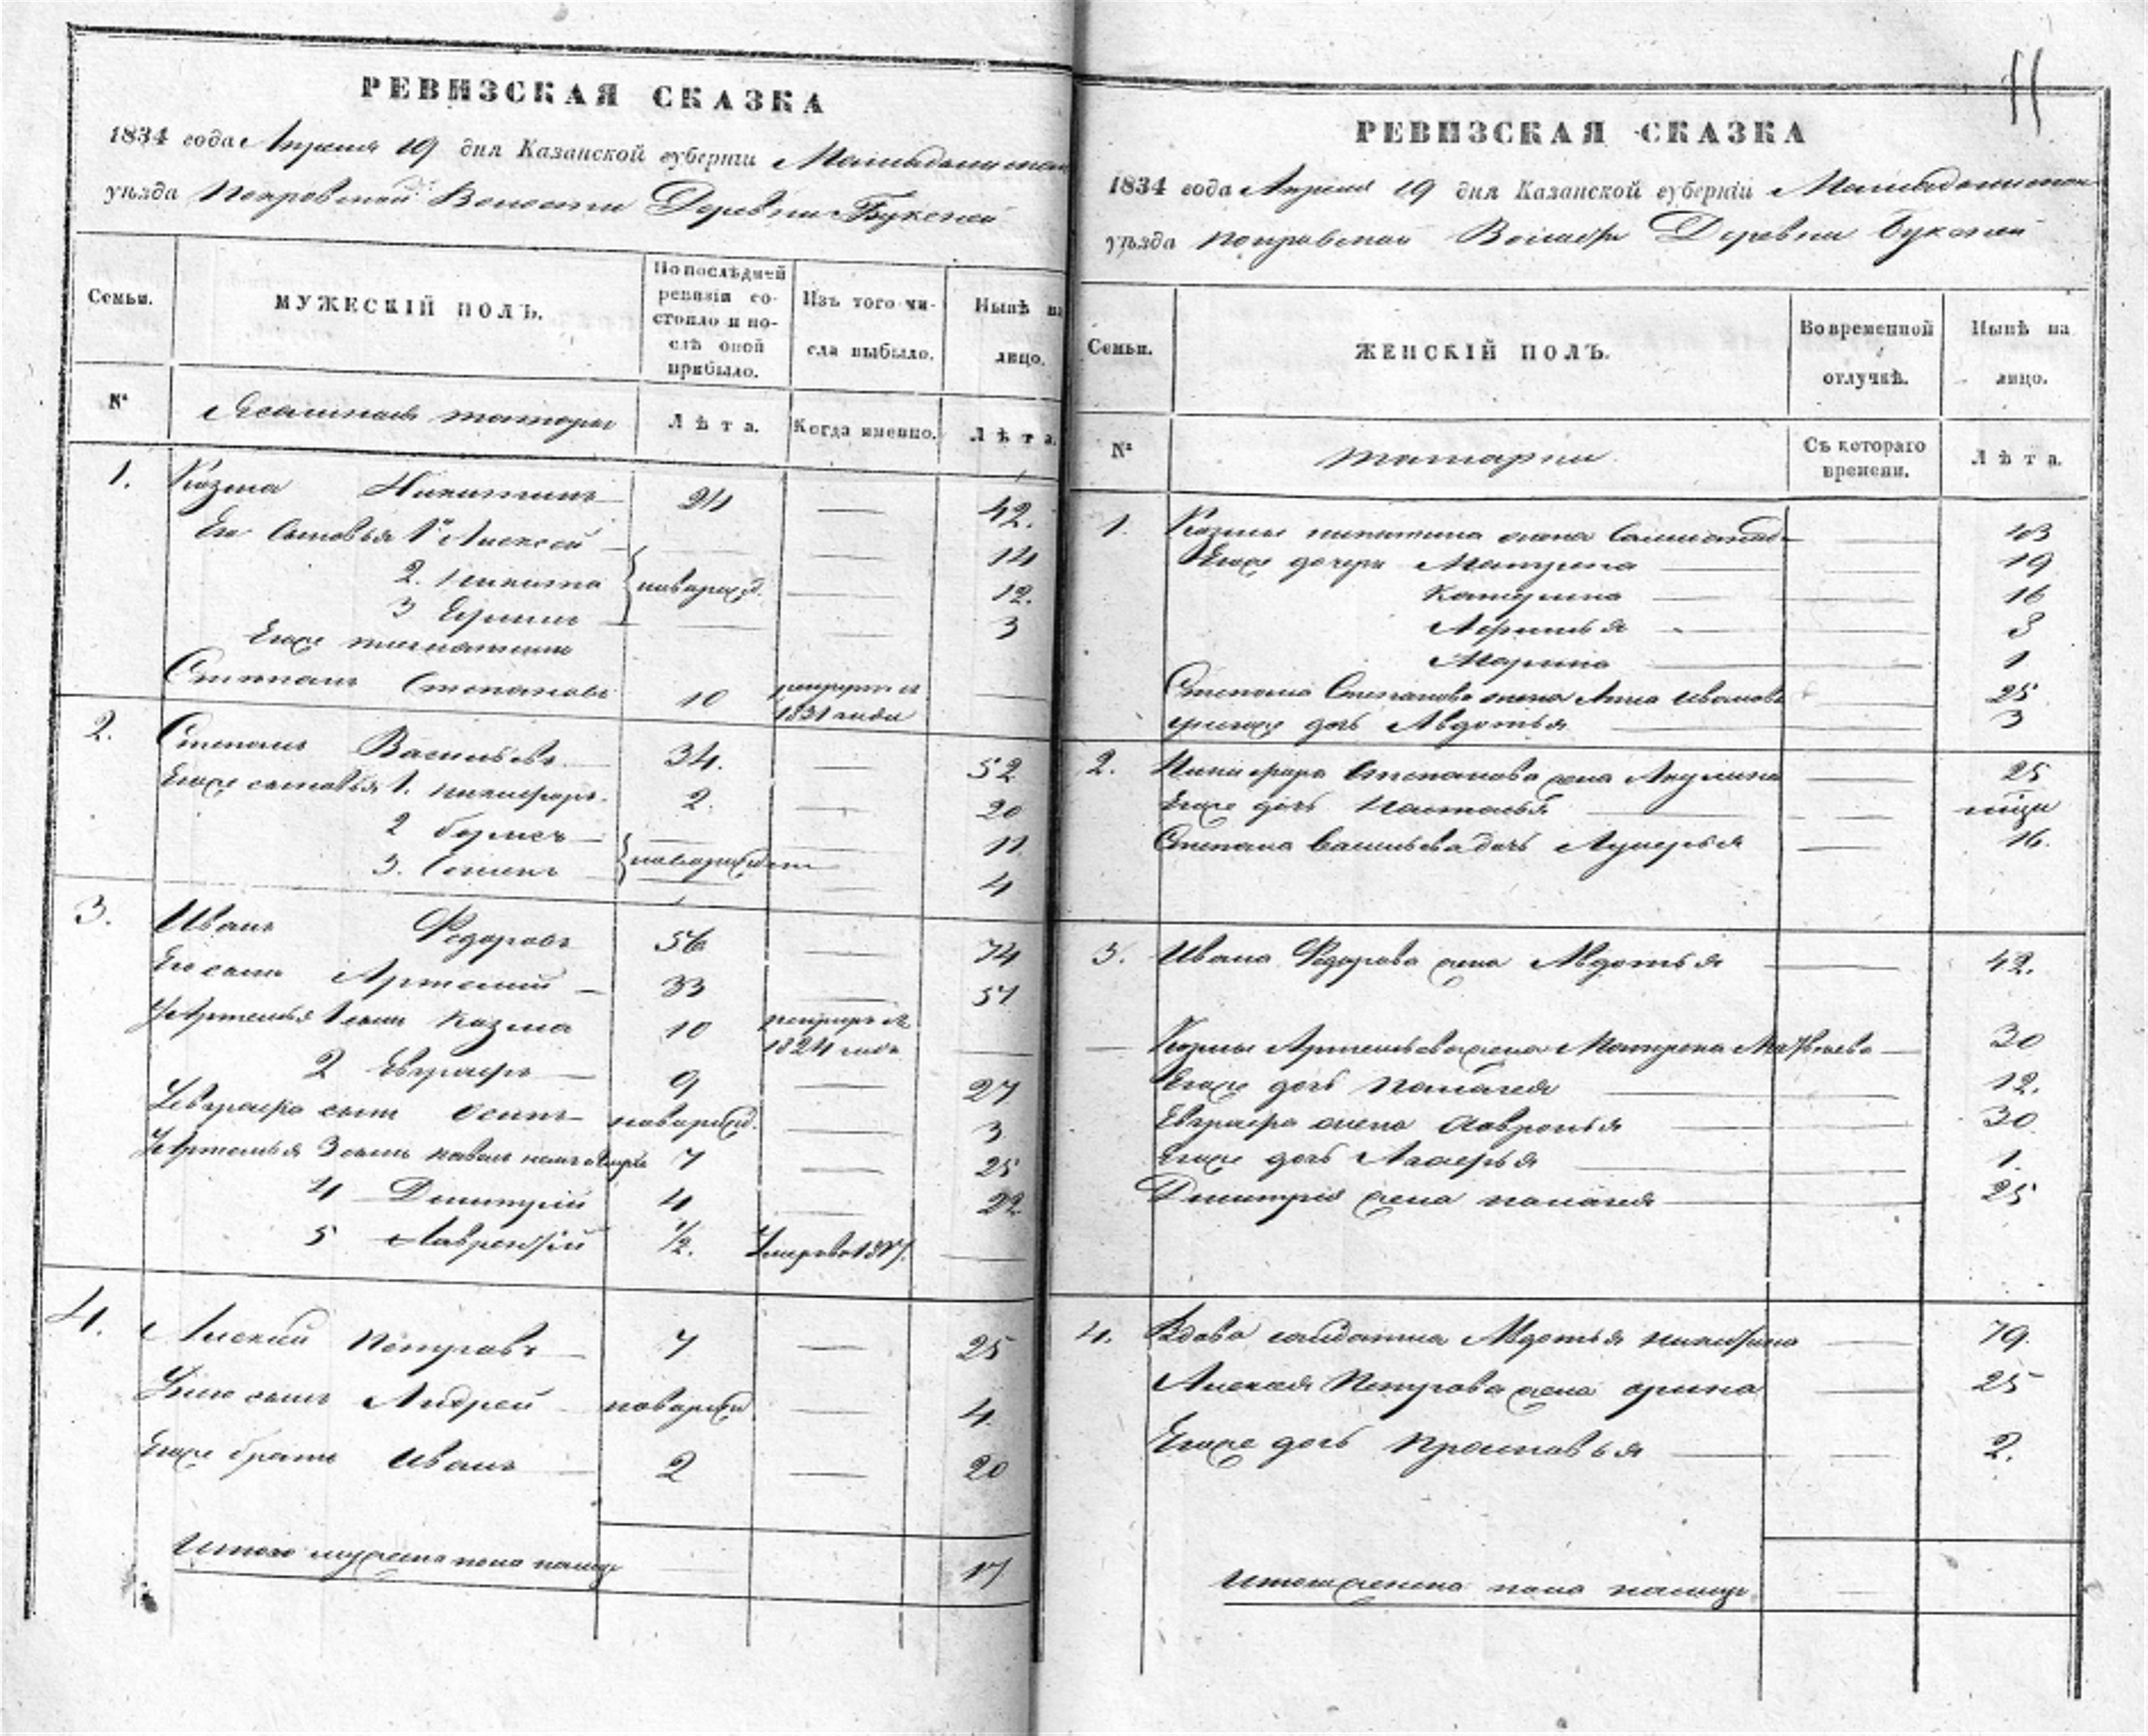 РЕВИЗСКАЯ СКАЗКА
1834 года Апреля 19 дня Казанской губерніи
уѣзда Покровской Волости Деревни Букеней
Семьи.
МУЖЕСКІЙ ПОЛЪ.
По послѣдней ревизіи состояло и послѣ оной прибыло.
Изъ того числа выбыло.
Нынѣ на лицо.
№
Ясашные татары
Лѣта.
Когда именно.
Лѣта.
1. Козма Никитинъ 24 — 42.
Его Сыновья 1й Алексей — 14
2. Никита новорожд. — 12.
3 Ефимъ — 3
Егоже племянник
Степанъ Степановъ 10 рекрутъ в 1831 года —
2. Степанъ Васильевъ 34. — 52
Егоже сыновья 1. Никифоръ 2. — 20
2 — 11
3. Семенъ новорожден — 4
3. Иванъ Федоровъ 56 — 74
Его сынъ Артемий 33 — 51
У Артемья 1 сынъ Козма 10 1824 года —
2 Евграфъ 9 — 27
У Евграфа сынъ Осипъ новорожд. — 3
У Артемья 3 сынъ Павелъ 7 — 25
4 Дмитрий 4 — 22
5 Лаврентій 1/2. Умеръ —
4. Алексей Петровъ 7 — 25
У него сынъ Андрей новорожд — 4.
Егоже братъ Иванъ 2 — 20
Итого мужеска пола налицо 17
11
РЕВИЗСКАЯ СКАЗКА
1834 года Апреля 19 дня Казанской губерніи
уѣзда Покровской Волости Деревни Букеней
Семьи.
ЖЕНСКІЙ ПОЛЪ.
Во временной отлучкѣ.
Нынѣ на лицо.
№
татарки
Съ котораго времени.
Лѣта.
1. Козмы Никитина жена — 43
Егоже дочери Матрена — 19
Катерина — 16
— 3
Марина — 1
Степана Степанова жена Анна Иванова — 25
дочь Авдотья — 3
2. Никифора Степанова жена Акулина — 25
Егоже дочь Наталья —
Степана Васильева дочь Лукерья — 16.
3. Ивана Федорова жена Авдотья — 42.
Козмы Артемьева жена Матрена Матвеева — 30
Егоже дочь Палагея — 12.
Евграфа жена Хавронья — 30
Егоже дочь — 1.
Дмитрия жена Палагея — 25
4. Вдова солдатка Авдотья Никитина — 79.
Алексея Петрова жена Орина — 25
Егоже дочь Прасковья — 2.
Итого женска пола налицо —